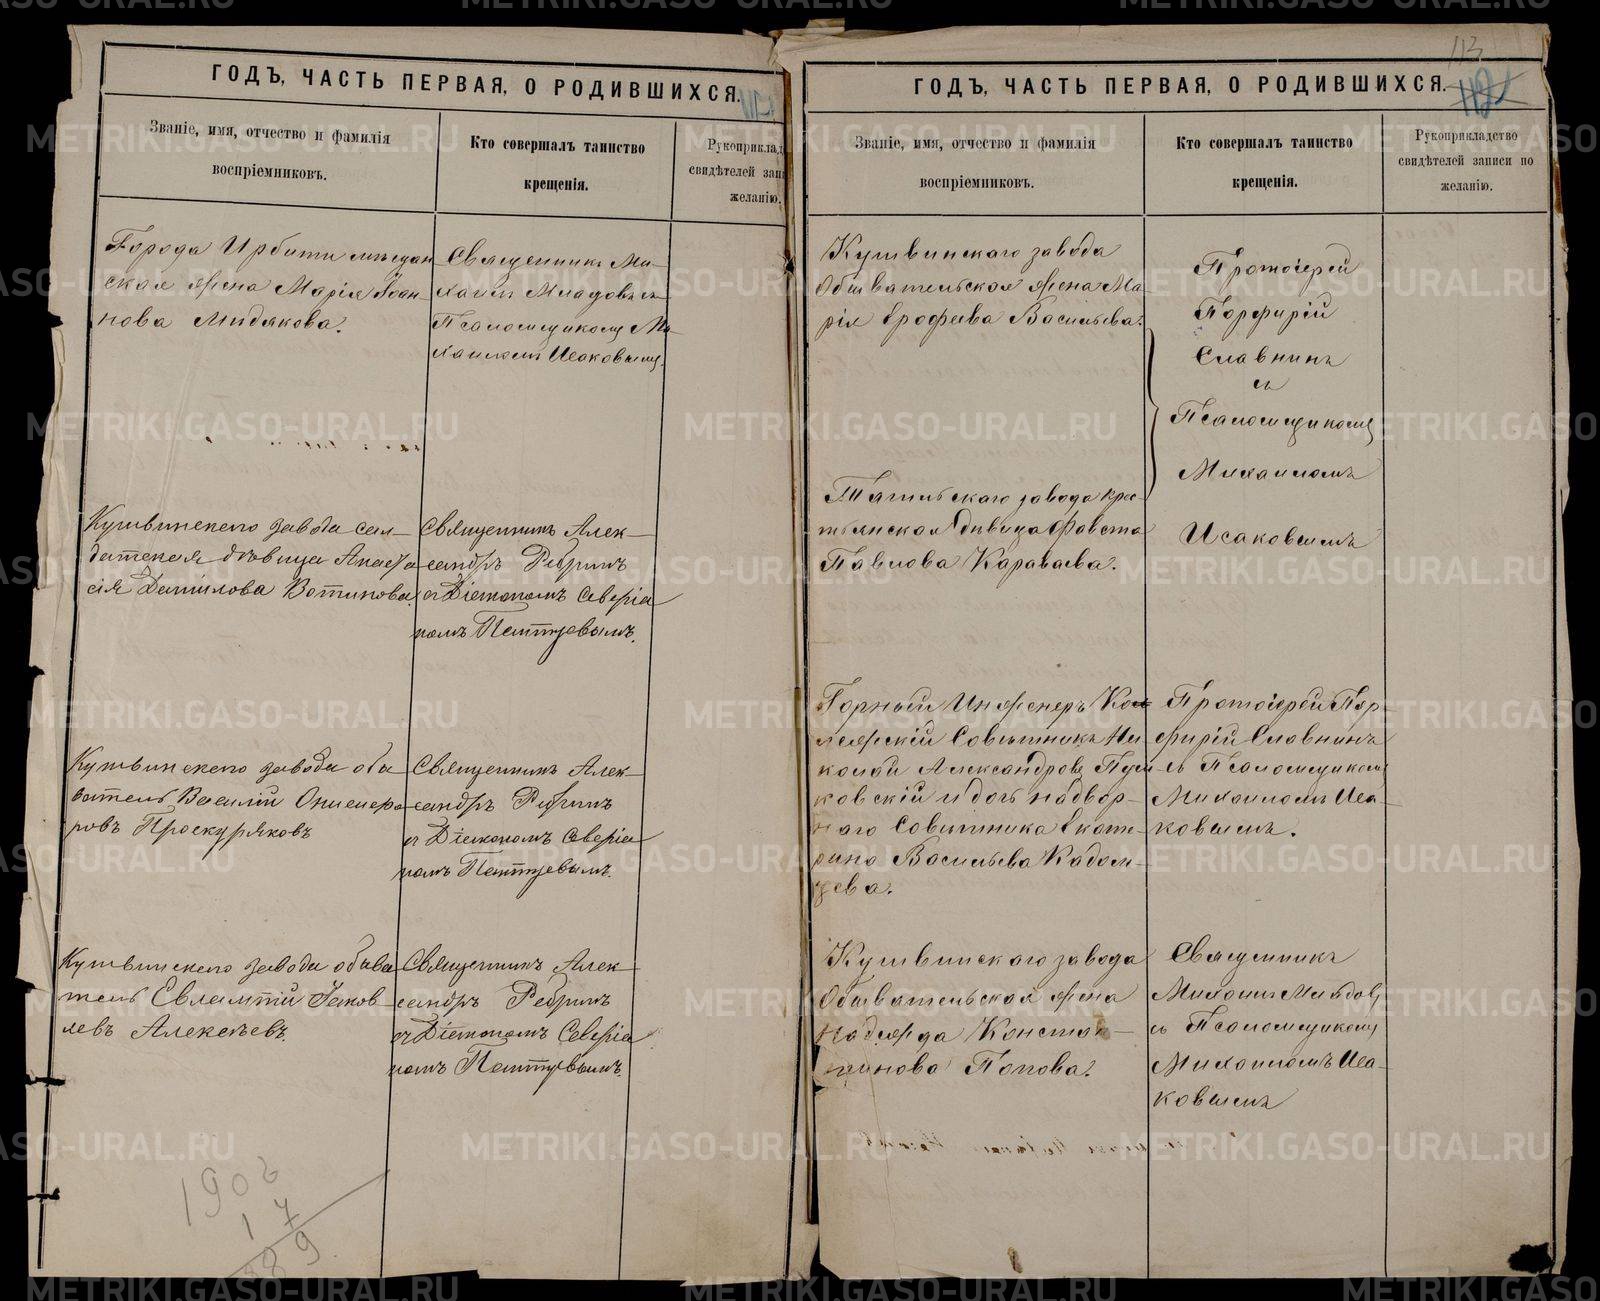 ГОДЪ, ЧАСТЬ ПЕРВАЯ, О РОДИВШИХСЯ.
Званіе, имя, отчество и фамилія
воспріемниковъ.
Кто совершалъ таинство
крещенія.
Рукоприклад
свидѣтелей запи
желанію.
Города Ирбити мѣщан
ская жена Марія Іоан
нова Мидякова.
Священникъ Ми-
хаилъ Младовъ съ
Псаломщикомъ Ми-
хаиломъ Исаковымъ.
Кушвинскаго завода сол-
датская дѣвица Анаста
сія Данилова Вотинова
Священникъ Алек-
сандръ Ребринъ
съ Діакономъ Северіа
номъ
Кушвинскаго завода обы
ватель Василій
ровъ Проскуряковъ
Священникъ Алек-
сандръ Ребринъ
съ Діакономъ Северіа
номъ
Кушвинскаго завода обыва
тель Евлампій Іаков
левъ Алексѣевъ.
Священникъ Алек-
сандръ Ребринъ
съ Діакономъ Северіа
номъ
190
17
89
113
112
ГОДЪ, ЧАСТЬ ПЕРВАЯ, О РОДИВШИХСЯ.
Званіе, имя, отчество и фамилія
воспріемниковъ.
Кто совершалъ таинство
крещенія.
Рукоприкладство
свидѣтелей записи по
желанію.
Кушвинскаго завода
Обывательская жена Ма
рія Ерофеева Васильева.
Тагильскаго завода крес-
тьянская дѣвица Фавста
Павлова Караваева.
Протоіерей
Порфирій
Славнинъ
съ
Псаломщикомъ
Михаиломъ
Исаковымъ
Горный Инженеръ Кол
лежскій Совѣтникъ Ни
колай Александровъ Куш
ковскій и дочь надвор-
наго Совѣтника Екате
рина Васильева Кадом-
цева.
Протоіерей Пор-
фирій Славнинъ
съ Псаломщикомъ
Михаиломъ Иса-
ковымъ.
Кушвинскаго завода
Обывательская жена
Надежда Констан-
тинова Попова.
Священникъ
Михаилъ Младовъ
съ Псаломщикомъ
Михаиломъ Иса-
ковымъ
METRIKI.GASO-URAL.RU